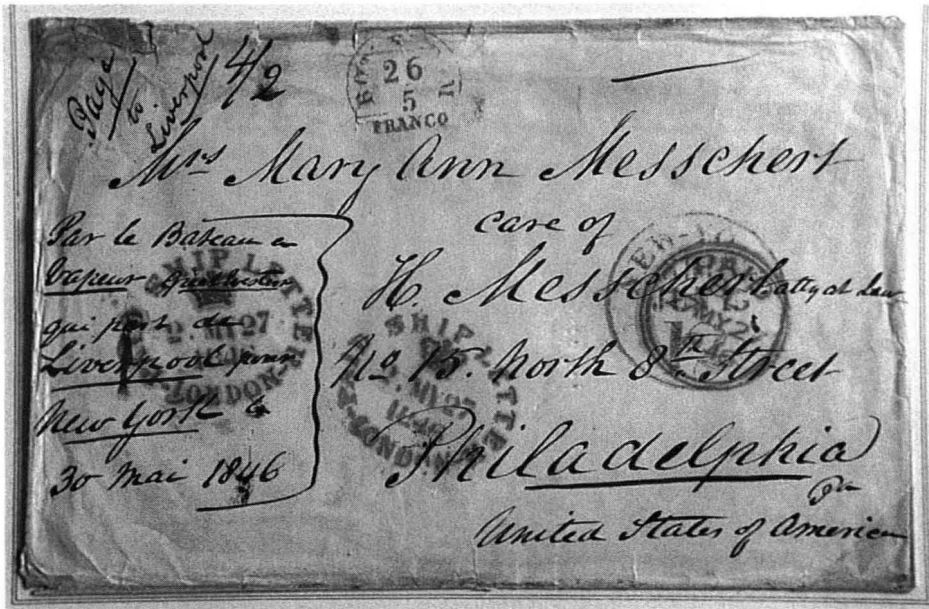 Payé
to
Liverpool
4/2
26
5
FRANCO
Mrs Mary Ann Messchert
care of
H. Messchert atty at Law
No 15. North 8th Street
Philadelphia
Pa
United States of America
Par le Bateau a
Vapeur
qui part de
Liverpool pour
New York le
30 Mai 1846
SHIP LETTER
MY 27
LONDON
SHIP LETTER
MY 27
1846
LONDON
NEW-YO